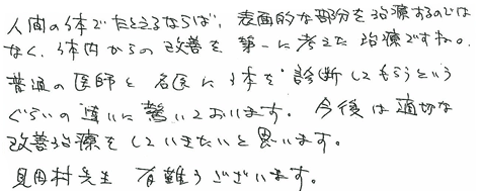 人間の体でたとえるならば、表面的な部分を治療するのでは
なく、体内からの改善を第一に考えた治療ですね。
普通の医師と名医に体を診断してもらうという
ぐらいの違いに驚いております。今後は適切な
改善治療をしていきたいと思います。
見田村先生 有難うございます。